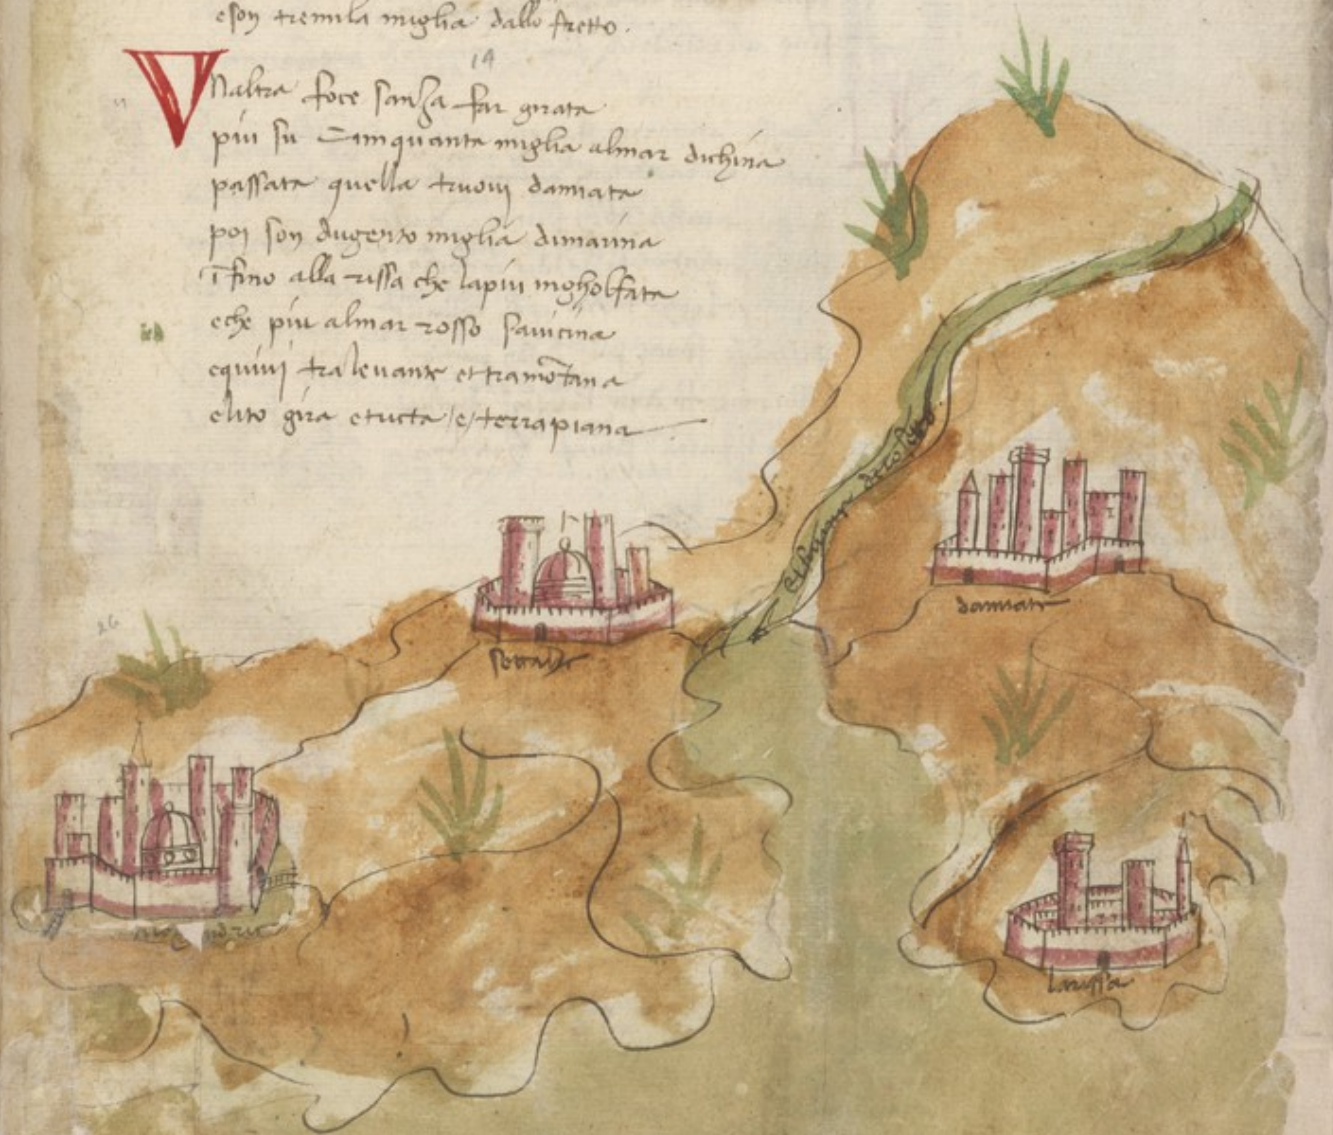 eson tremila miglia dallo stretto.
19
Unaltra foce sanza far girata
piu su Cinquanta miglia almar dichina
passata quella truovi damiata
poi son dugento miglia dimarina
Ifino alla rissa che lapiu ingholfata
eche piu almar rosso savicina
equivi tralevante et tramõtana
elito gira etucta e terrapiana
el fiume
damiata
26
larissa